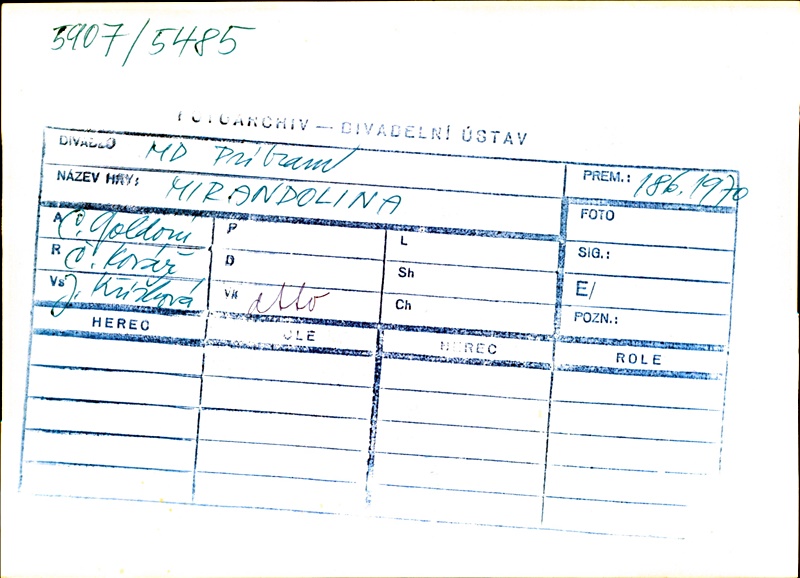 5907/5485
FOTOARCHIV — DIVADELNÍ ÚSTAV
DIVADLO MD Příbram PREM.: 18.6.1970
NÁZEV HRY: MIRANDOLINA
FOTO
A C. Goldoni P L SIG.:
R O. Kovář D Sh E/
Vs J. Křížková Vk dtto Ch POZN.:
HEREC ROLE HEREC ROLE